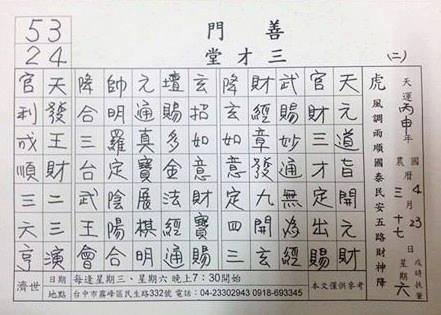 53
24
善門
三才堂
(二)
天運丙申年 國4月23日 戌時扶鸞
農曆三 十七 星期六
虎 風調雨順國泰民安五路財神降
天元道旨開元財
官財三才定出賜
武賜妙通無為經
財經章發九開玄
降玄如意定四三
玄招如意財寶賜
壇賜多金法經通
元通真寶展棋明
帥明羅定陰陽合
降合三台武王會
天發王財二三演
官利成順三天亨
濟世
日期 每逢星期三、星期六 晚上7:30開始
地點 台中市霧峰區民生路332號 電話:04-23302943 0918-693345
本文僅供參考